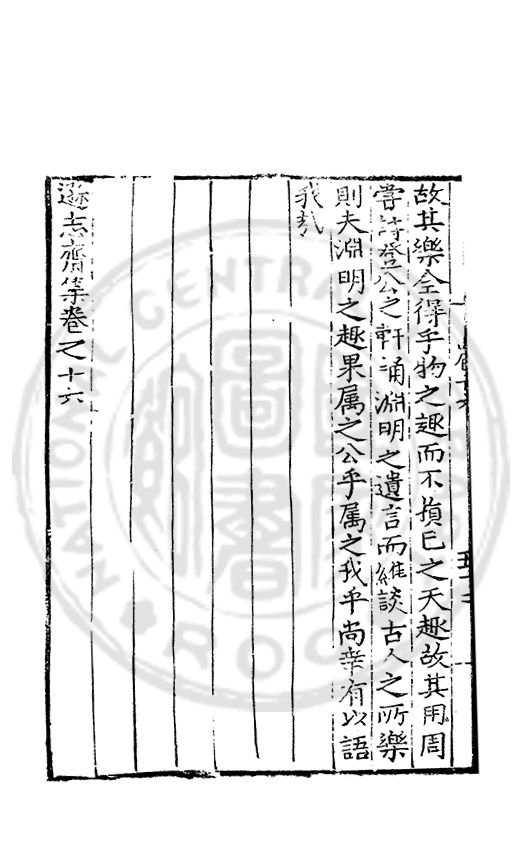 故其樂全得乎物之趣而不損已之天趣故其用周
嘗請登公之軒誦淵明之遺言而縱談古人之所樂
則夫淵明之趣果属之公乎属之我乎尚幸有以語
我哉
遜志齋集卷之十六
NATIONAL CENTRAL
圖
書
ROC